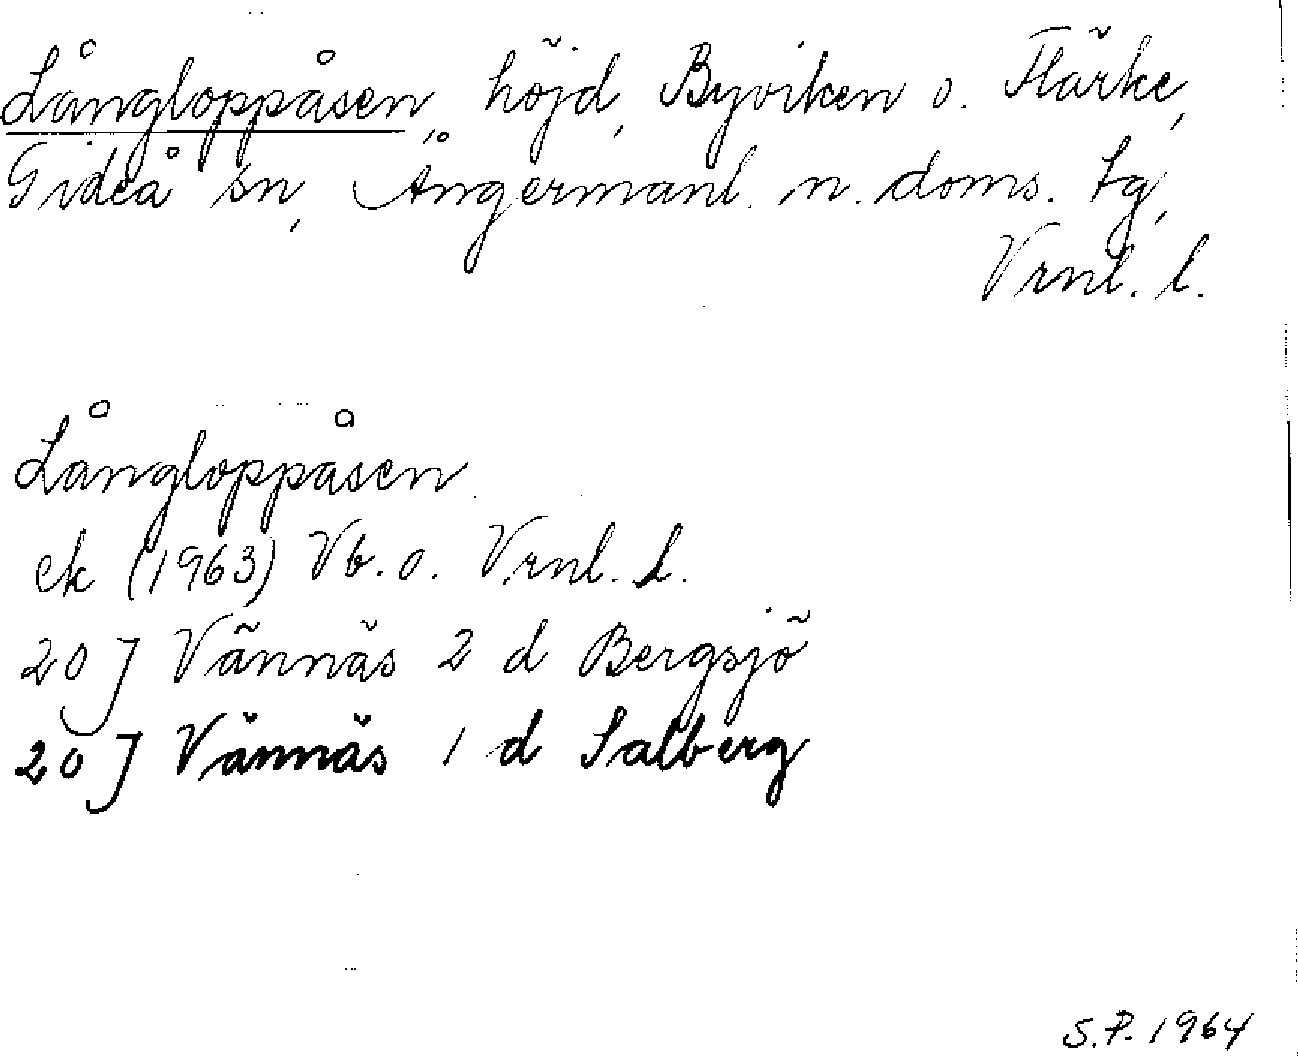 Långloppåsen, höjd, Byviken o. Flärke,
Gideå sn, Ångermanl. n. doms. tg,
Vrnl. l.
Långloppåsen
ek (1963) Vb. o. Vrnl. l.
20 J Vännäs 2 d Bergsjö
20 J Vännäs 1 d Salberg
S.P. 1964